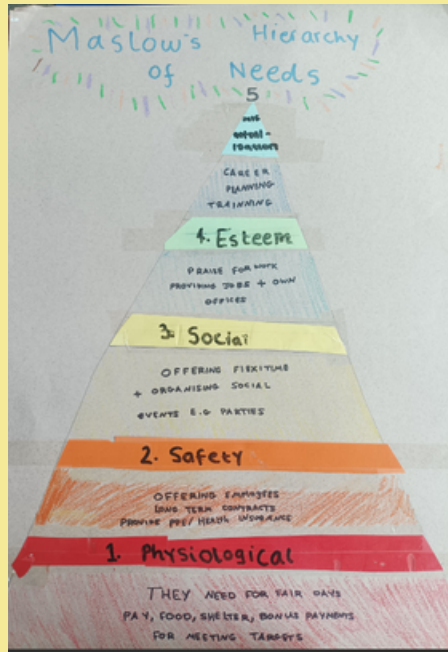 Maslow's Hierarchy
of Needs
5
CAREER
PLANNING
TRAINNING
4. Esteem
PRAISE FOR WORK
PROVIDING JOBS + OWN
OFFICES
3. Social
OFFERING FLEXITIME
+ ORGANISING SOCIAL
EVENTS E.G PARTIES
2. Safety
OFFERING EMPLOYEES
LONG TERM CONTRACTS
PROVIDE PPE/ HEALTH INSURANCE
1. Physiological
THEY NEED FOR FAIR DAYS
PAY, FOOD, SHELTER, BONUS PAYMENTS
FOR MEETING TARGETS